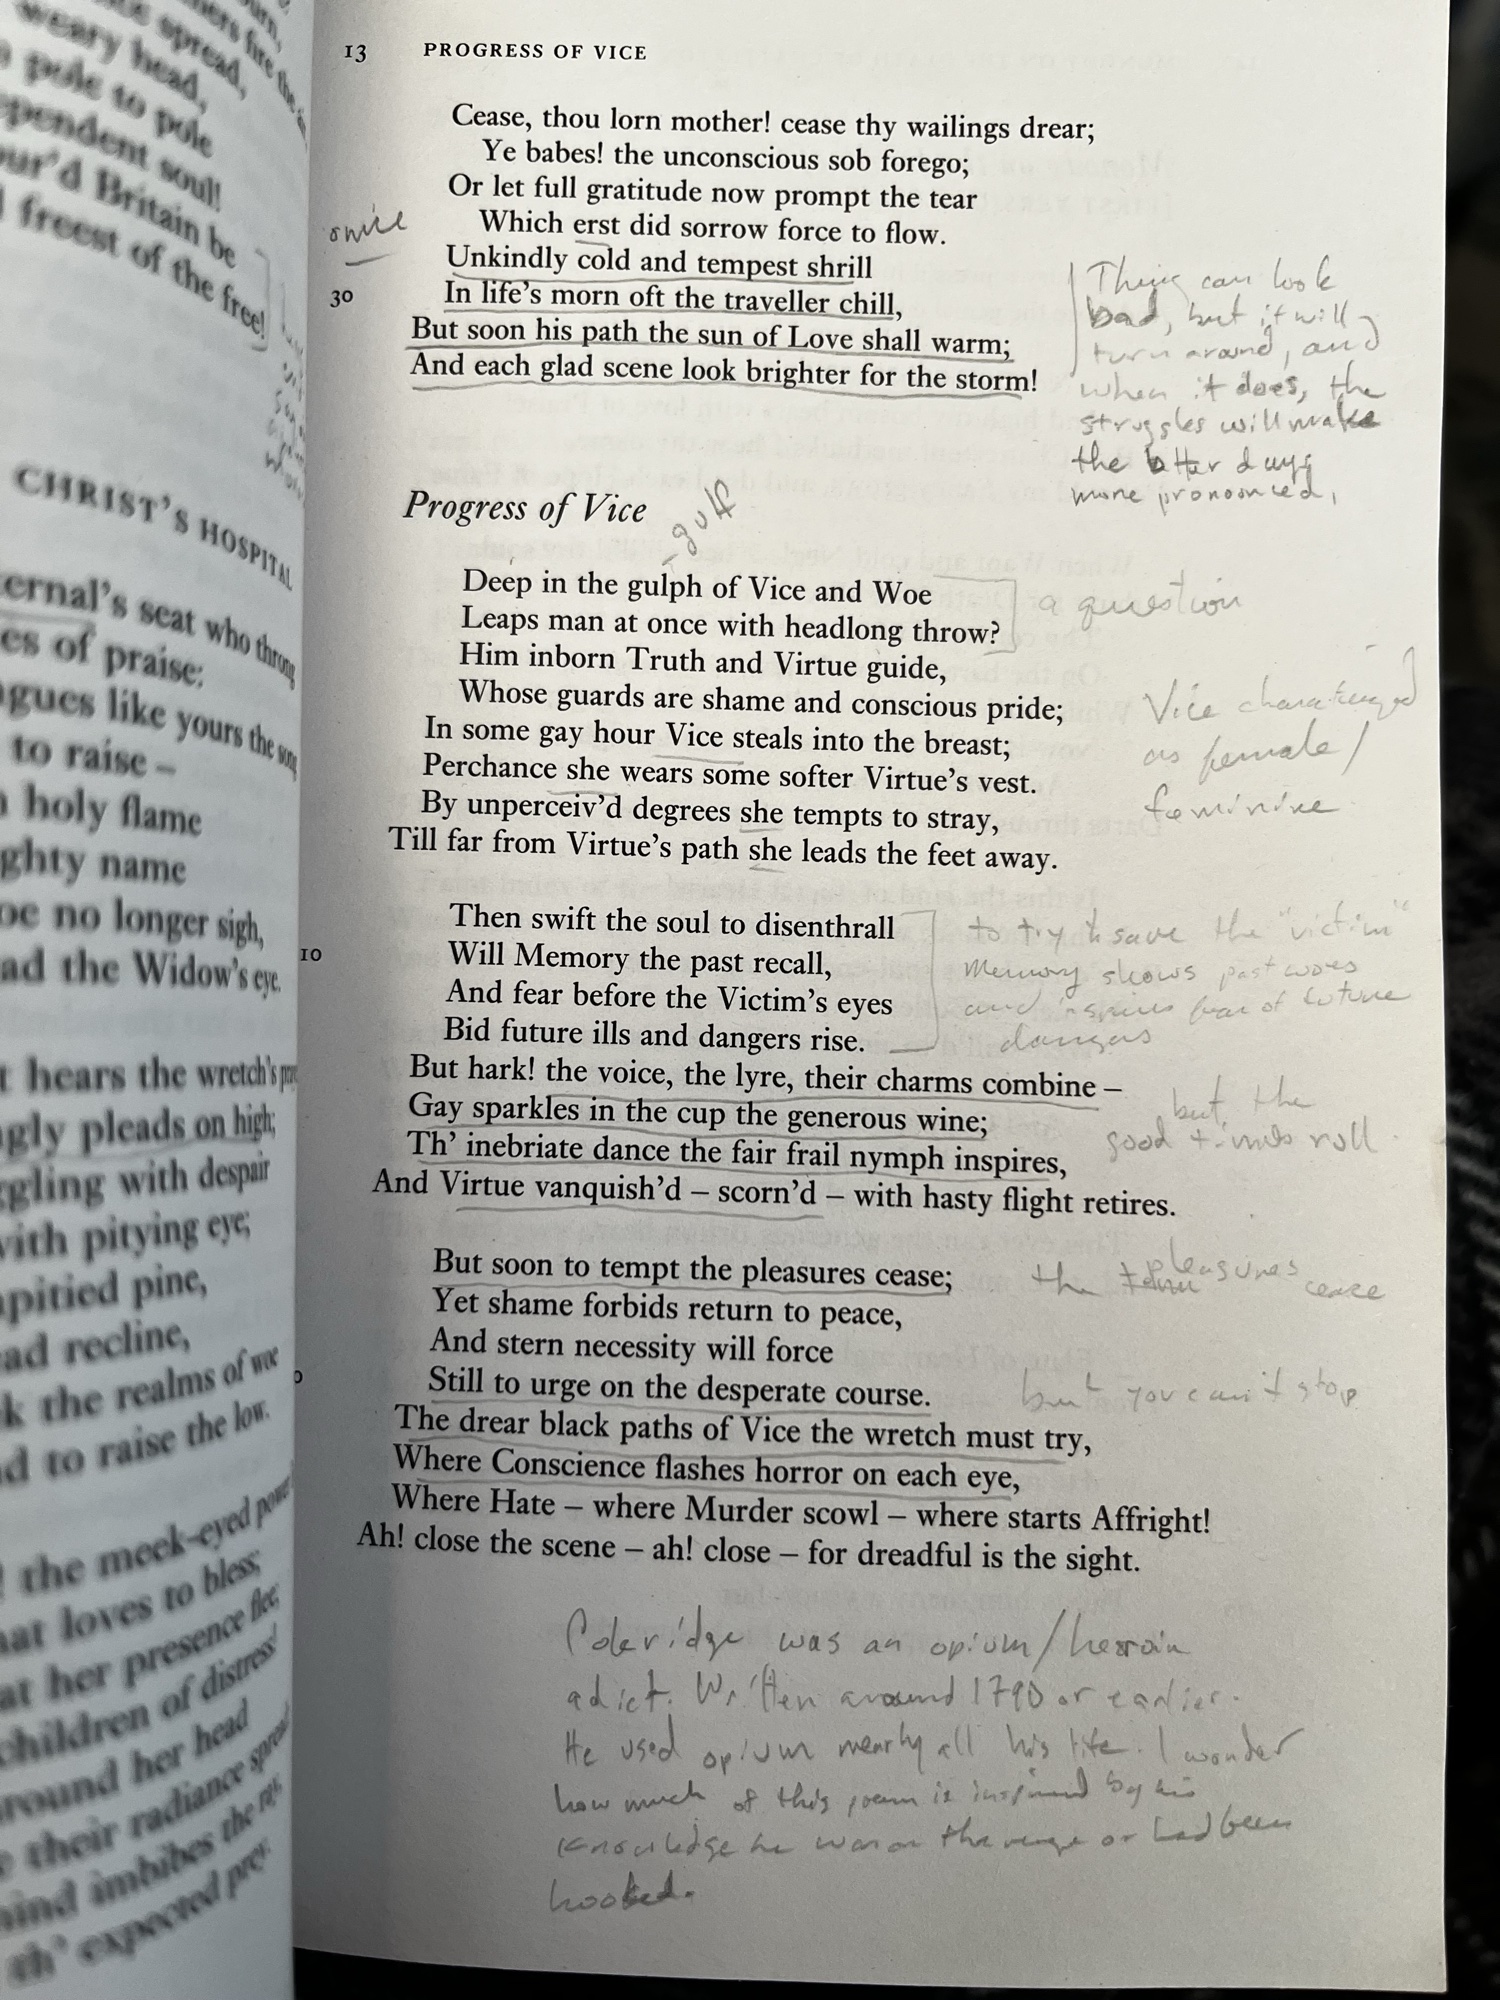 weary head,
pole to pole
ependent soul!
our'd Britain be
freest of the free!
CHRIST'S HOSPITAL
ternal's seat who throng
es of praise:
gues like yours the song
to raise –
holy flame
ghty name
oe no longer sigh,
ad the Widow's eye.
hears the wretch's
gly pleads on high;
ggling with despair
with pitying eye;
pitied pine,
ad recline,
k the realms of woe
d to raise the low.
the meek-eyed power
at loves to bless;
at her presence flee,
children of distress
round her head
their radiance spread
mind imbibes the
th' expected
13 PROGRESS OF VICE
Cease, thou lorn mother! cease thy wailings drear;
Ye babes! the unconscious sob forego;
Or let full gratitude now prompt the tear
Which erst did sorrow force to flow.
Unkindly cold and tempest shrill
30 In life's morn oft the traveller chill,
But soon his path the sun of Love shall warm;
And each glad scene look brighter for the storm!
Things can look
bad, but it will
turn around, and
when it does, the
struggles will make
the better days
more pronounced,
Progress of Vice
gulf
Deep in the gulph of Vice and Woe
Leaps man at once with headlong throw?
a question
Him inborn Truth and Virtue guide,
Whose guards are shame and conscious pride;
In some gay hour Vice steals into the breast;
Perchance she wears some softer Virtue's vest.
By unperceiv'd degrees she tempts to stray,
Till far from Virtue's path she leads the feet away.
Vice characterized
as female/
feminine
Then swift the soul to disenthrall
10 Will Memory the past recall,
And fear before the Victim's eyes
Bid future ills and dangers rise.
to try to save the "victim"
Memory shows past woes
and inspires fear of future
dangers
But hark! the voice, the lyre, their charms combine –
Gay sparkles in the cup the generous wine;
Th' inebriate dance the fair frail nymph inspires,
And Virtue vanquish'd – scorn'd – with hasty flight retires.
but the
good times roll
But soon to tempt the pleasures cease;
the pleasures cease
Yet shame forbids return to peace,
And stern necessity will force
Still to urge on the desperate course.
but you can't stop
The drear black paths of Vice the wretch must try,
Where Conscience flashes horror on each eye,
Where Hate – where Murder scowl – where starts Affright!
Ah! close the scene – ah! close – for dreadful is the sight.
Coleridge was an opium/heroin
adict. Written around 1790 or earlier.
He used opium nearly all his life. I wonder
how much of this poem is inspired by his
knowledge he was on the verge or had been
hooked.